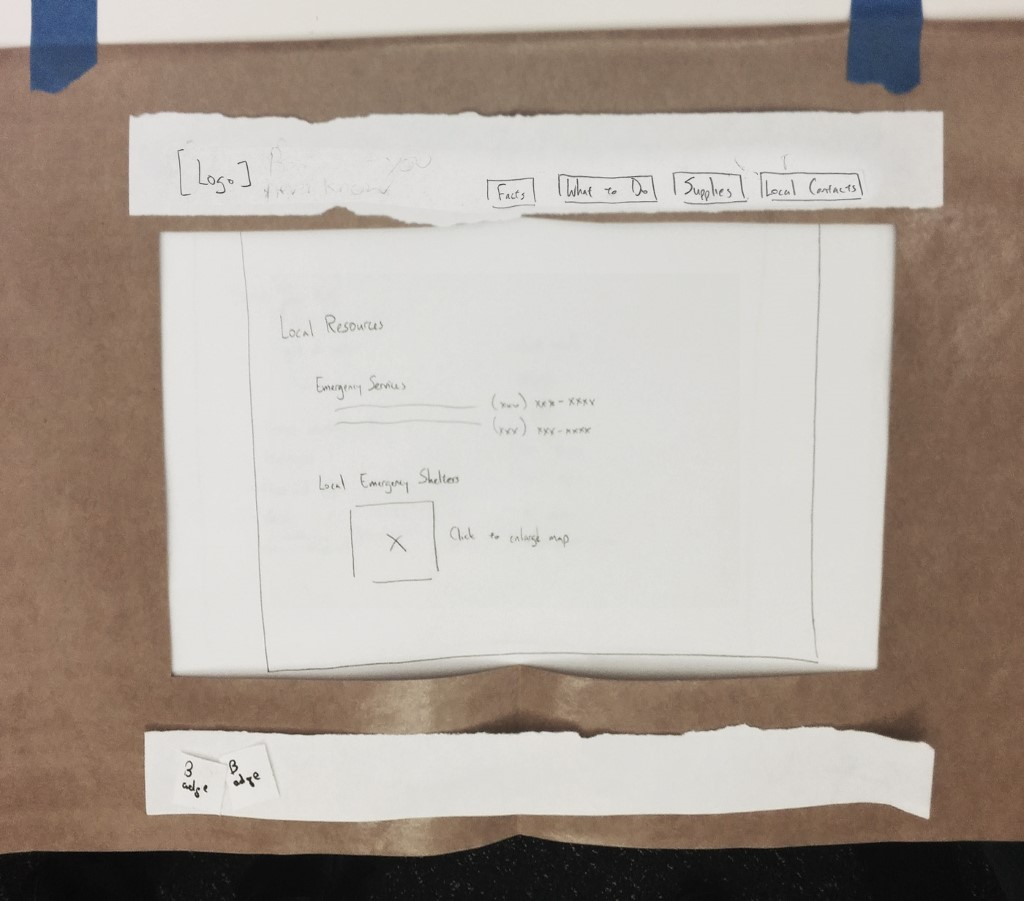 [Logo]
you
Know
Facts
What to Do
Supplies
Local Contacts
Local Resources
Emergency Services
(xxx) xxx-xxxx
(xxx) xxx-xxxx
Local Emergency Shelters
X
Click to enlarge map
Badge
Badge